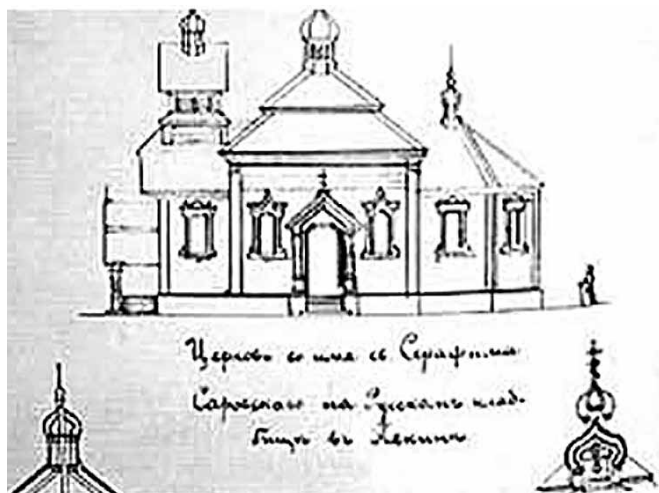 Церковь во имя св. Серафима
Саровскаго на Русскомъ клад-
бищѣ въ Пекинѣ